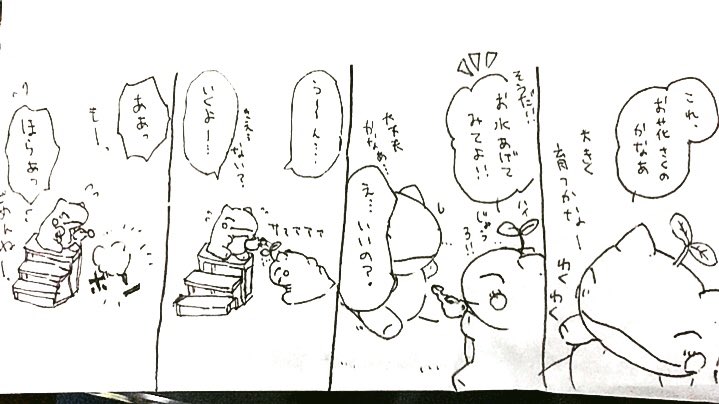 これ、
お花さくの
かなあ
大きく
育つかなー
わくわく
そうだ!!
お水あげて
みてよ!!
ハイ
じょうろ!!
大丈夫
かなぁ…
え…いいの?
う〜ん…
いくよー…
きえ…ない?
サァァァァ
ああっ
もー、
ほらぁっ
ボッ
ごめんねー